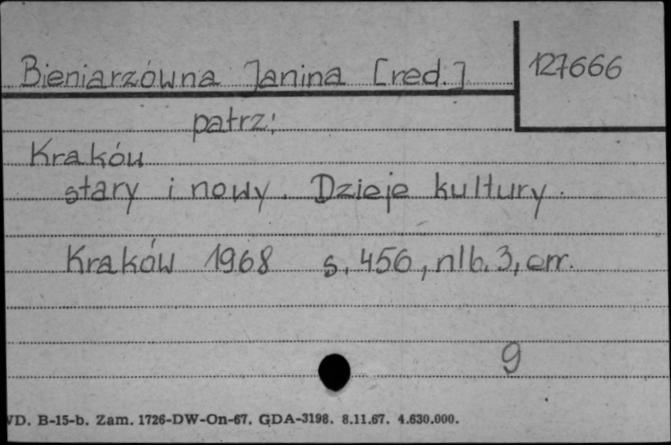 Bieniarzówna Janina [red.] 127666
patrz:
Kraków
stary i nowy. Dzieje kultury.
Kraków 1968 s. 456, nlb. 3, err.
9
WD. B-15-b. Zam. 1726-DW-On-67. GDA-3198. 8.11.67. 4.630.000.